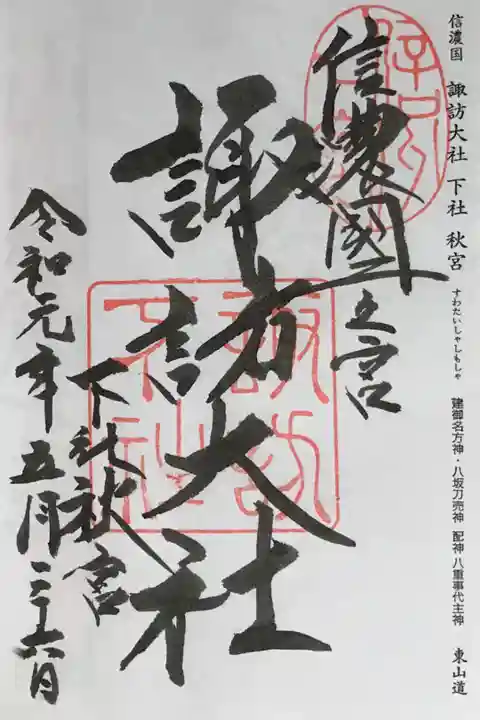 信濃国 諏訪大社 下社 秋宮 すわだいしゃしもしゃ 建御名方神・八坂刀売神 配神 八重事代主神 東山道
信濃國一之宮
諏訪大社
下社秋宮
令和元年五月二十六日
諏訪
下社